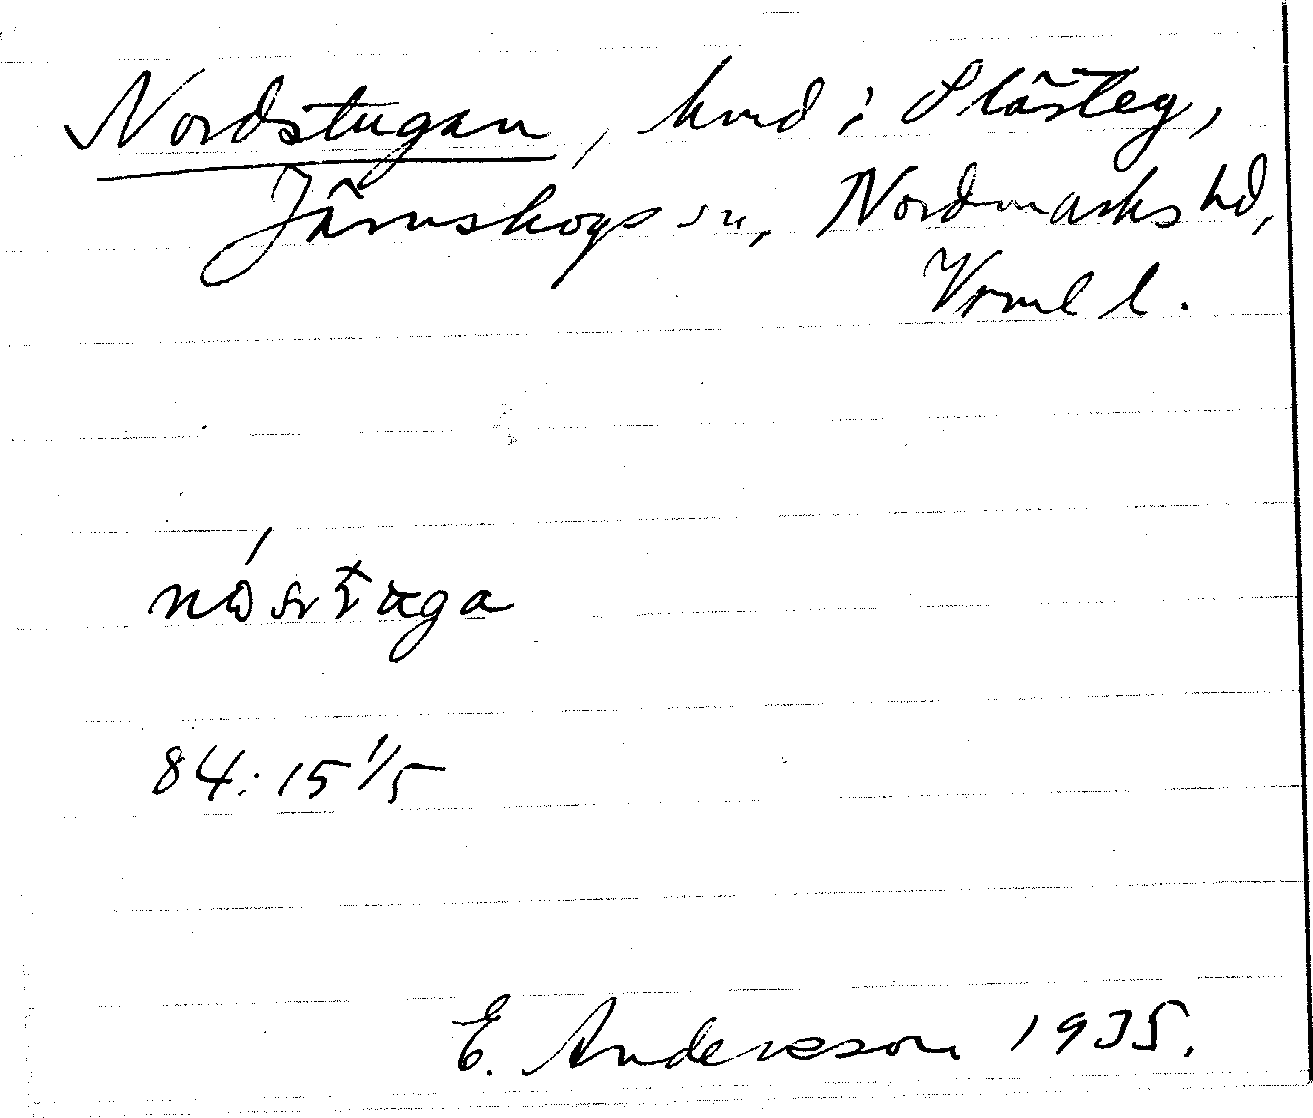 Nordstugan, hmd i Slästeg,
Järnskogs sn, Nordmarks hd,
Vrml l.
84: 15 1/5
E. Andersson 1935.